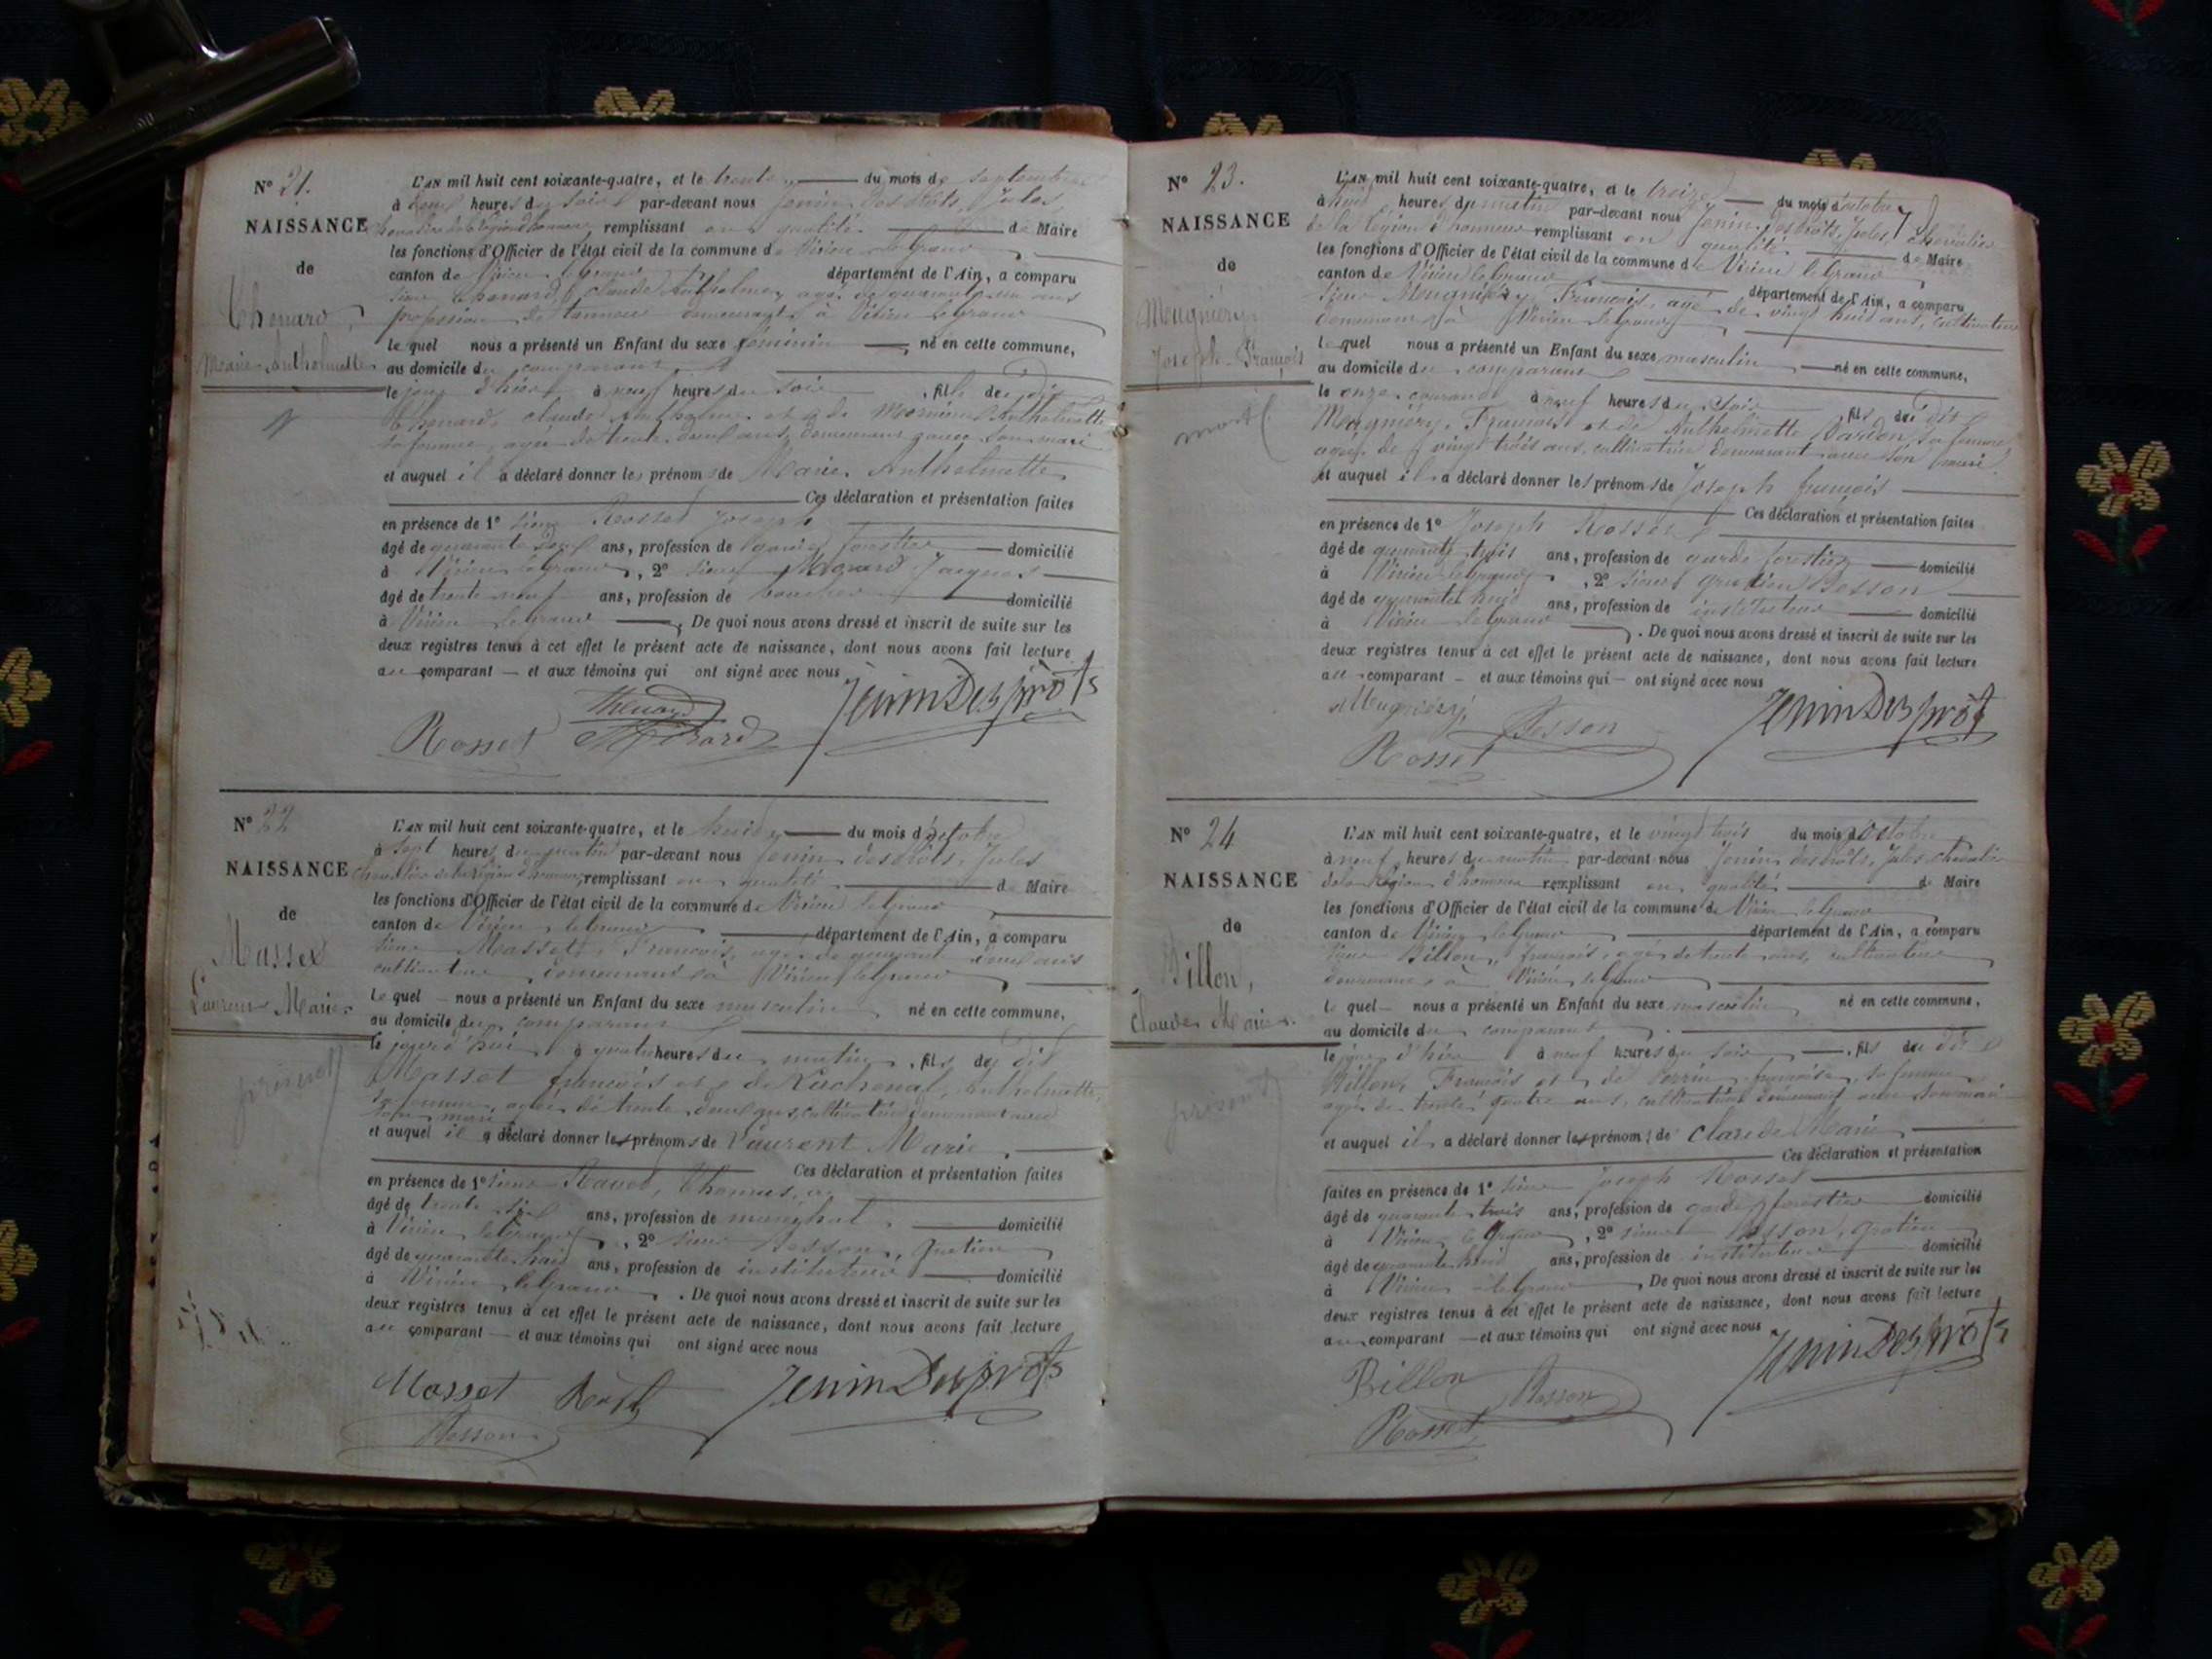 N° 21.
NAISSANCE
de
Thenard,
Marie Anthelmette
L'AN mil huit cent soixante-quatre, et le trente du mois de septembre
à heures du soir par-devant nous Jenin desprôts, Jules,
chevalier de la légion d'honneur, remplissant en qualité de Maire
les fonctions d'Officier de l'état civil de la commune de Virieu le grand
canton de Virieu le grand département de l'Ain, a comparu
sieur Thenard, claude Anthelme, agé de quarante un ans
profession de tanneur demeurant à Virieu le grand
le quel nous a présenté un Enfant du sexe féminin né en cette commune,
au domicile du comparant
le jour d'hier à neuf heures du soir, fille du dit
Thenard, claude Anthelme et de Anthelmette
sa femme, agée de trente deux ans, demeurant avec son mari
et auquel il a déclaré donner les prénoms de Marie Anthelmette
Ces déclaration et présentation faites
en présence de 1° sieur Rosset Joseph
âgé de quarante ans, profession de garde forestier domicilié
à Virieu le grand, 2° sieur Jacques
âgé de trente neuf ans, profession de boucher domicilié
à Virieu le grand. De quoi nous avons dressé et inscrit de suite sur les
deux registres tenus à cet effet le présent acte de naissance, dont nous avons fait lecture
au comparant et aux témoins qui ont signé avec nous
Thenard JeninDesprôts
Rosset
N° 22
NAISSANCE
de
Masset
Laurent Marie
L'AN mil huit cent soixante-quatre, et le huit du mois d'octobre
à sept heures du matin par-devant nous Jenin desprôts, Jules
chevalier de la légion d'honneur, remplissant en qualité de Maire
les fonctions d'Officier de l'état civil de la commune de Virieu le grand
canton de Virieu le grand département de l'Ain, a comparu
sieur Masset, François, agé de quarante deux ans
cultivateur demeurant à Virieu le grand
le quel nous a présenté un Enfant du sexe masculin né en cette commune,
au domicile du comparant
le jourd'hui à quatre heures du matin, fils du dit
Masset françois et de Anthelmette,
sa femme, agée de trente deux ans, cultivatrice demeurant avec
son mari
et auquel il a déclaré donner les prénoms de Laurent Marie
Ces déclaration et présentation faites
en présence de 1° sieur Thomas,
âgé de trente six ans, profession de maréchal domicilié
à Virieu le grand, 2° sieur Besson, Gratien
âgé de quarante huit ans, profession de instituteur domicilié
à Virieu le grand. De quoi nous avons dressé et inscrit de suite sur les
deux registres tenus à cet effet le présent acte de naissance, dont nous avons fait lecture
au comparant et aux témoins qui ont signé avec nous
Masset JeninDesprôts
Besson
N° 23.
NAISSANCE
de
Meugniéry
Joseph-François
mort
L'AN mil huit cent soixante-quatre, et le treize du mois d'octobre
à huit heures du matin par-devant nous Jenin desprôts, Jules, chevalier
de la légion d'honneur remplissant en qualité de Maire
les fonctions d'Officier de l'état civil de la commune de Virieu le grand
canton de Virieu le grand département de l'Ain, a comparu
sieur Meugniéry, François, agé de vingt huit ans, cultivateur
demeurant à Virieu le grand
le quel nous a présenté un Enfant du sexe masculin né en cette commune,
au domicile du comparant
le onze courant à neuf heures du soir fils du dit
Meugniéry, François et de Anthelmette Vardon, sa femme
agée de vingt trois ans, cultivatrice demeurant avec son mari.
et auquel il a déclaré donner les prénoms de Joseph françois
Ces déclaration et présentation faites
en présence de 1° Joseph Rosset
âgé de quarante trois ans, profession de garde forestier domicilié
à Virieu le grand, 2° sieur Gratien Besson
âgé de quarante huit ans, profession de instituteur domicilié
à Virieu le grand. De quoi nous avons dressé et inscrit de suite sur les
deux registres tenus à cet effet le présent acte de naissance, dont nous avons fait lecture
au comparant et aux témoins qui ont signé avec nous
Meugniéry Besson JeninDesprôts
Rosset
N° 24
NAISSANCE
de
Billon,
Claude Marie.
L'AN mil huit cent soixante-quatre, et le vingt trois du mois d'octobre
à neuf heures du matin par-devant nous Jenin desprôts, Jules chevalier
de la légion d'honneur remplissant en qualité de Maire
les fonctions d'Officier de l'état civil de la commune de Virieu le grand
canton de Virieu le grand département de l'Ain, a comparu
sieur Billon, françois, agé de trente ans, cultivateur
demeurant à Virieu le grand
le quel nous a présenté un Enfant du sexe masculin né en cette commune,
au domicile du comparant
le jour d'hier à neuf heures du soir, fils du dit
Billon, François et de Perrin françoise, sa femme
agée de trente quatre ans, cultivatrice demeurant avec son mari
et auquel il a déclaré donner les prénoms de claude Marie
Ces déclaration et présentation
faites en présence de 1° sieur Joseph Rosset
âgé de quarante trois ans, profession de garde forestier domicilié
à Virieu le grand, 2° sieur Besson, gratien
âgé de quarante huit ans, profession de instituteur domicilié
à Virieu le grand. De quoi nous avons dressé et inscrit de suite sur les
deux registres tenus à cet effet le présent acte de naissance, dont nous avons fait lecture
au comparant et aux témoins qui ont signé avec nous
Billon Besson JeninDesprôts
Rosset